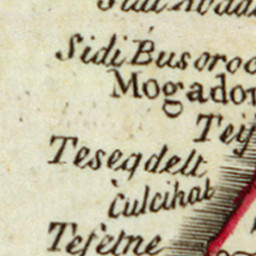 Sidi Busoroc
Mogador
Teseqdelt
Culcihat
Tefetne